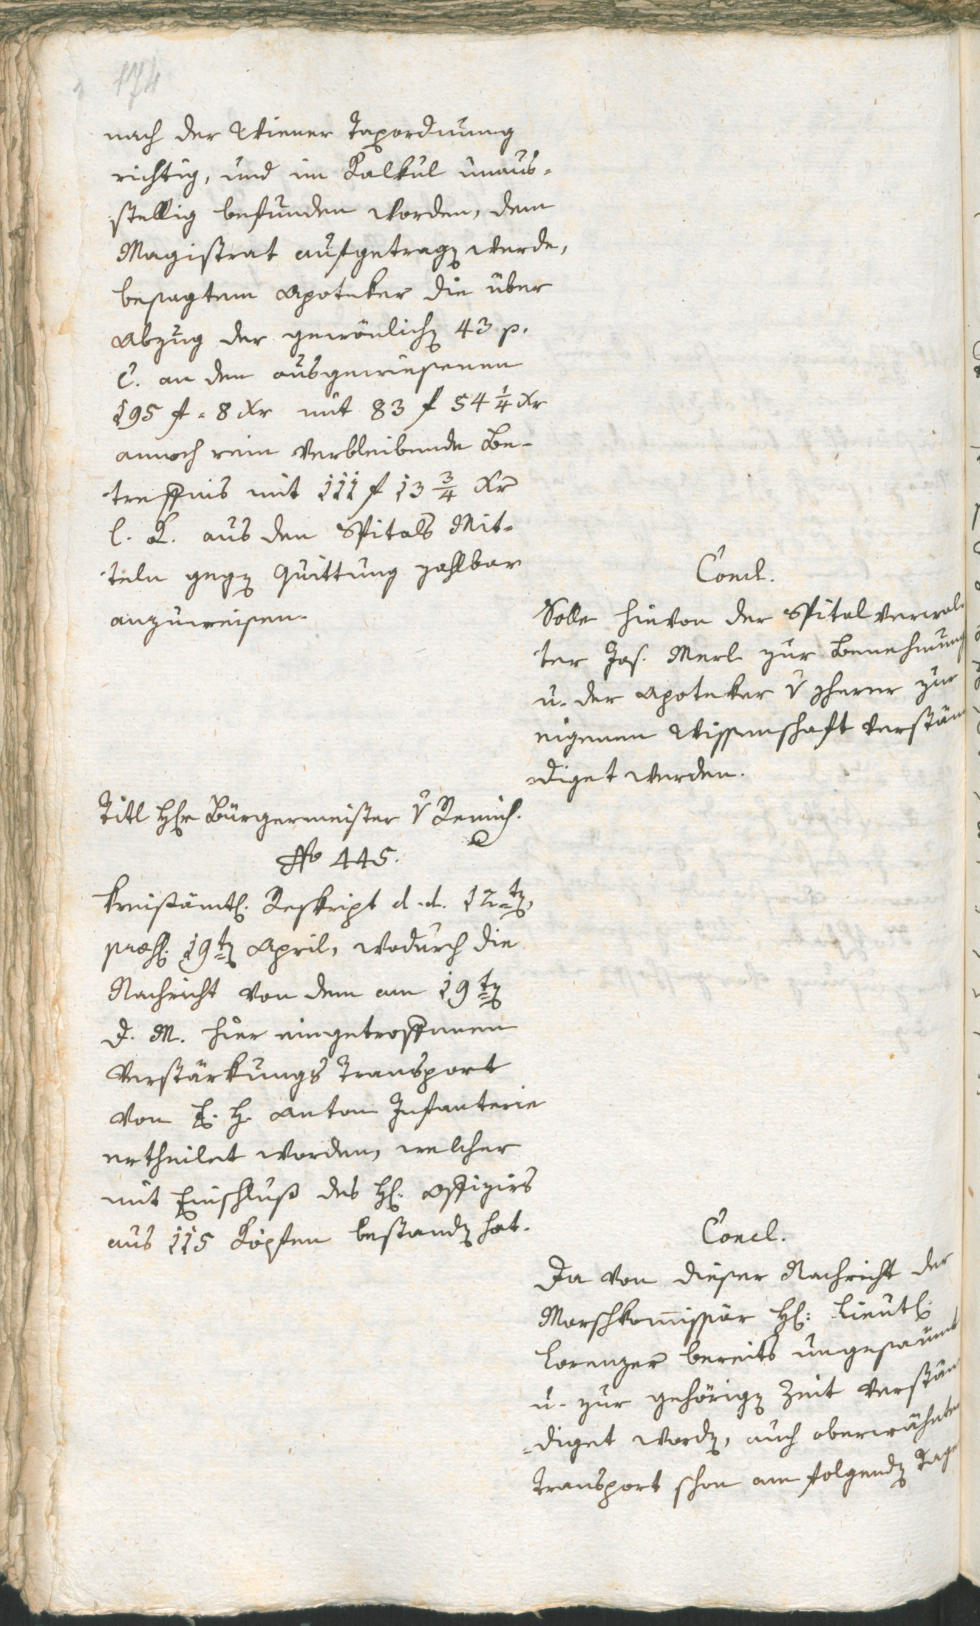 174
nach der Wiener Taxordnung
richtig, und im Kalkul unaus-
stellig befunden worden, dem
Magistrat aufgetragen werde,
besagtem Apoteker die über
Abzug der gewönlichen 43 p.
C. an den ausgewiesenen
195 f. 8 xr mit 83 f 54 1/4 xr
annoch rein verbleibende Be-
treffnis mit 111 f 13 3/4 xr
l. K. aus den Spitals Mit-
teln gegen Quittung zahlbar
anzuweisen.
Concl.
Solle hievon der Spitalverwal
ter Jos. Merl zur Benehmung
u. der Apoteker v zur
eigenen Wissenschaft verstän
diget werden.
Titl Hr Bürgermeister v Remich.
No 445.
Kreisämtl. Reskript d. d. 12ten,
praes. 19ten April, wodurch die
Nachricht von dem am 19ten
d. M. hier eingetroffenen
Verstärkungs Transport
von E. H. Anton Infanterie
ertheilet worden, welcher
mit Einschluß des H. Offiziers
aus 115 Köpfen bestanden hat.
Concl.
Da von dieser Nachricht der
Marschkommissär H: Lieut:
Lorenzer bereits ungesäumt
u. zur gehörigen Zeit verstän
diget worden, auch oberwähnter
Transport schon am folgenden Tage